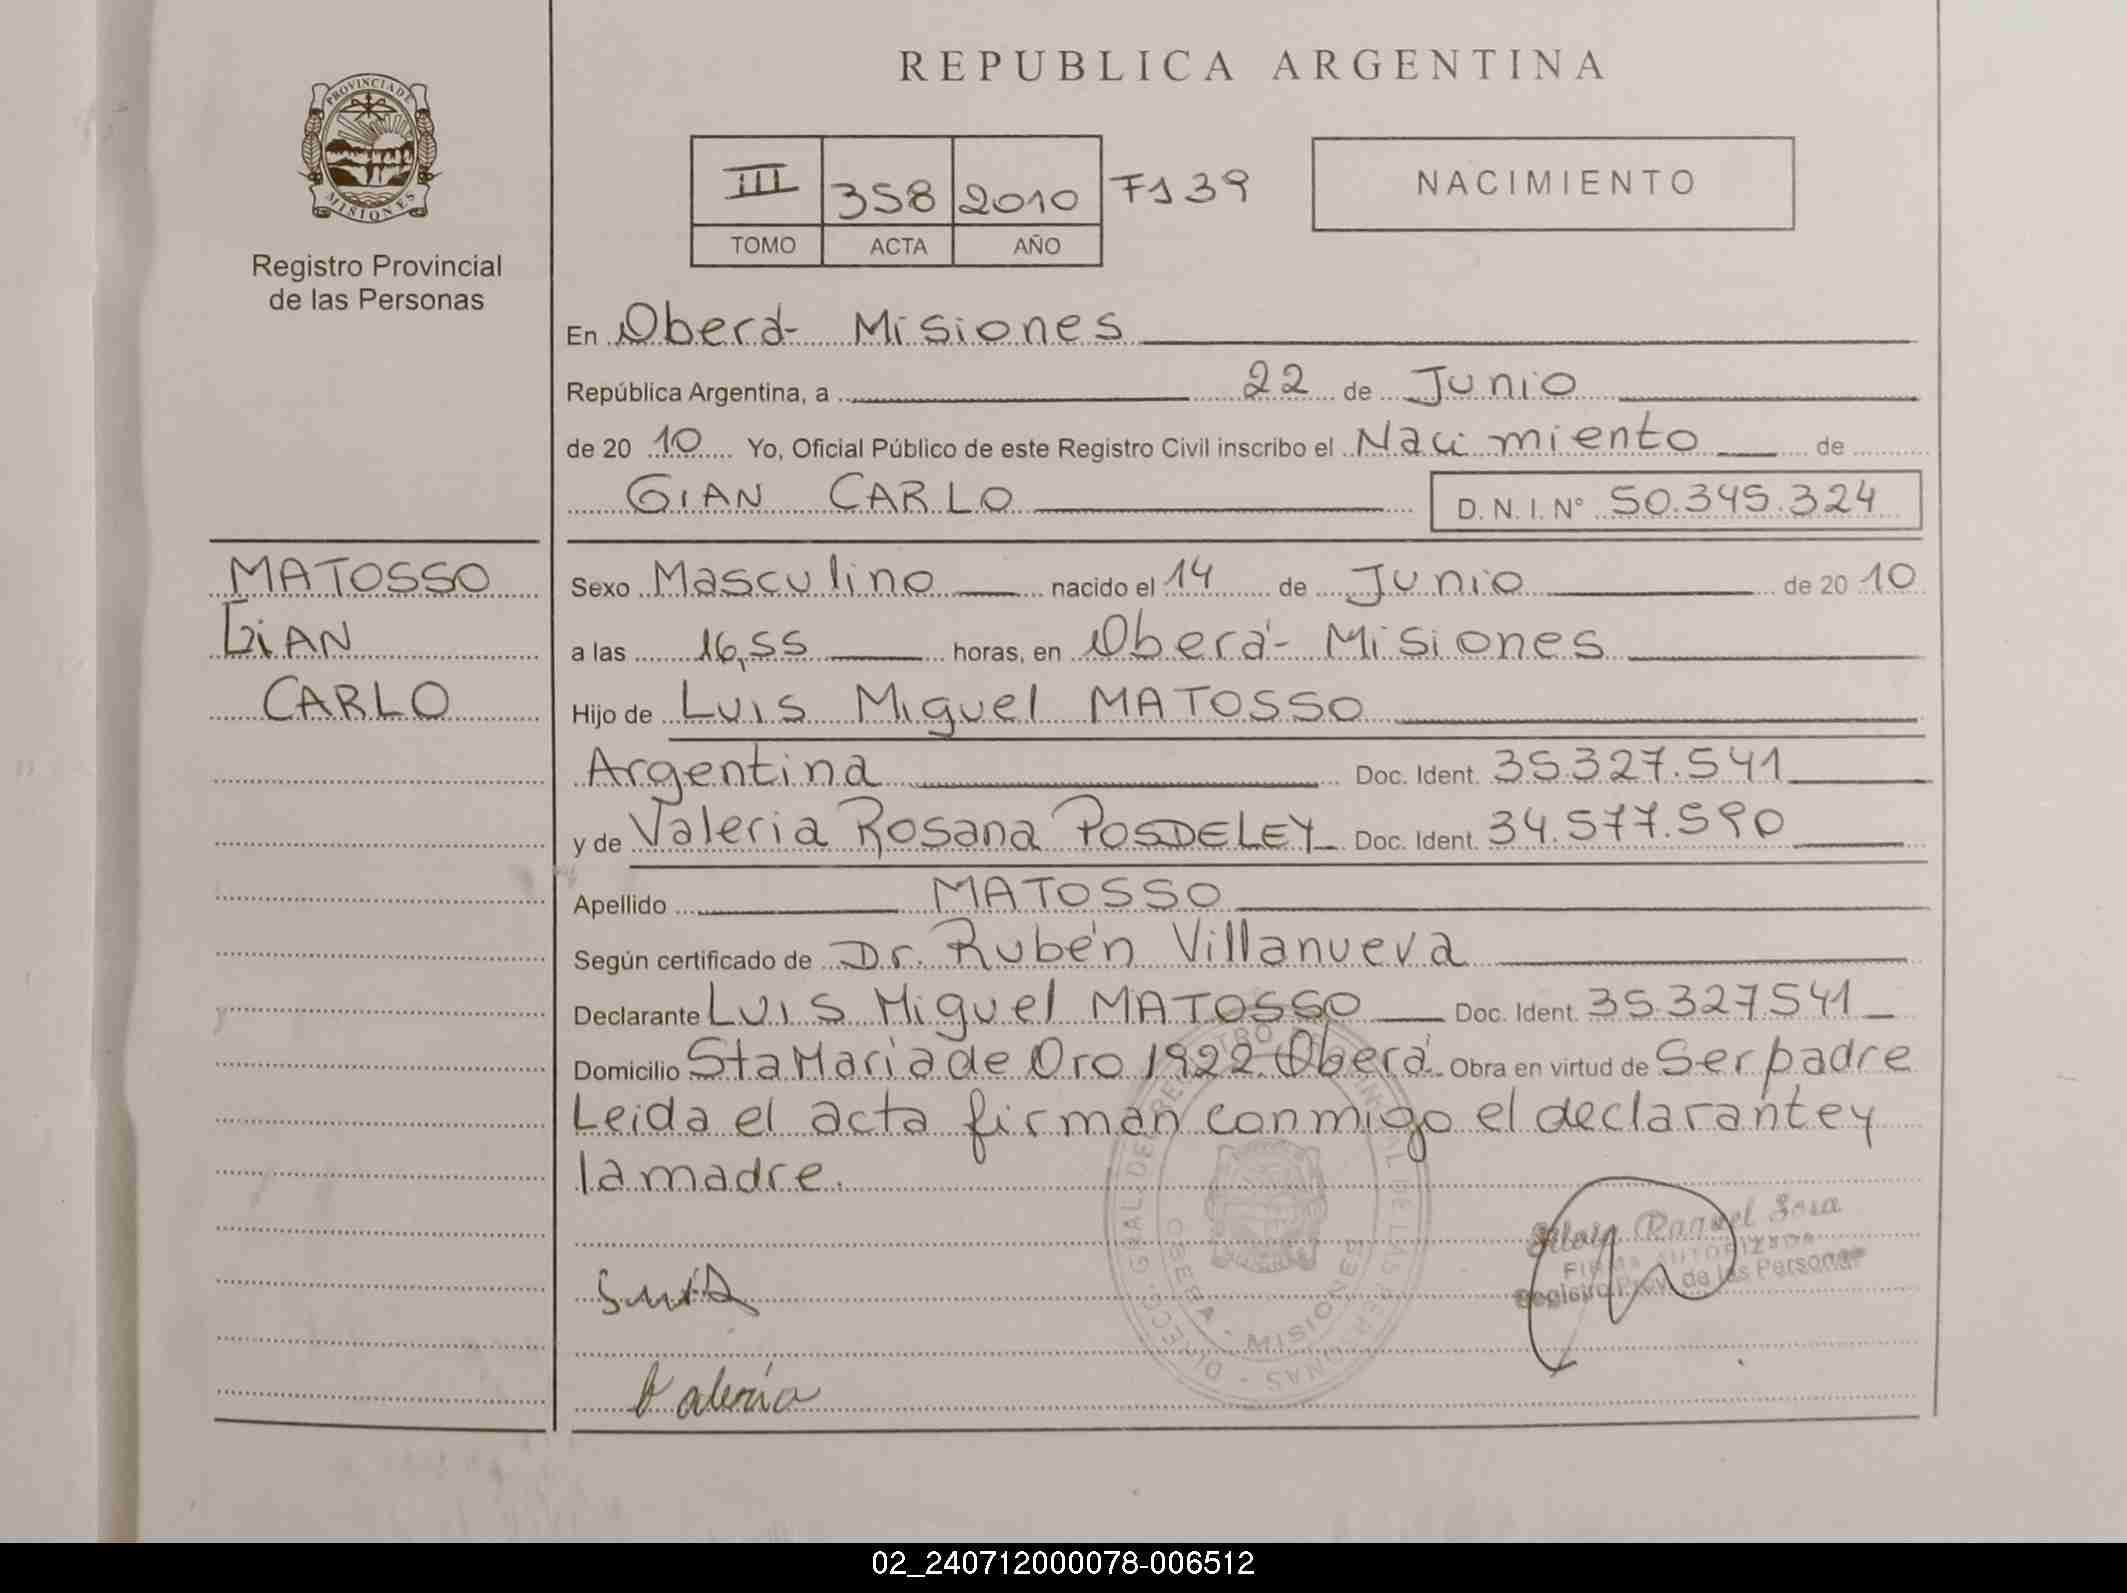 REPUBLICA ARGENTINA
PROVINCIA DE
MISIONES
Registro Provincial
de las Personas
III 358 2010 F139
TOMO ACTA AÑO
NACIMIENTO
En Oberá- Misiones
República Argentina, a 22 de Junio
de 20 10 Yo, Oficial Público de este Registro Civil inscribo el Nacimiento de
GIAN CARLO D. N. I. N° 50.345.324
MATOSSO
GIAN
CARLO
Sexo Masculino nacido el 14 de Junio de 20 10
a las 16,55 horas, en Oberá- Misiones
Hijo de Luis Miguel MATOSSO
Argentina Doc. Ident. 35.327.541
y de Valeria Rosana POSDELEY Doc. Ident. 34.577.590
Apellido MATOSSO
Según certificado de Dr. Rubén Villanueva
Declarante Luis Miguel MATOSSO Doc. Ident. 35.327.541
Domicilio Sta Maria de Oro 1922 Oberá Obra en virtud de Ser padre
Leida el acta firman conmigo el declarante y
la madre.
Raquel Sosa
FIRMA AUTORIZADA
Registro Prov. de las Personas
OBERA - MISIONES
Valeria
02_240712000078-006512